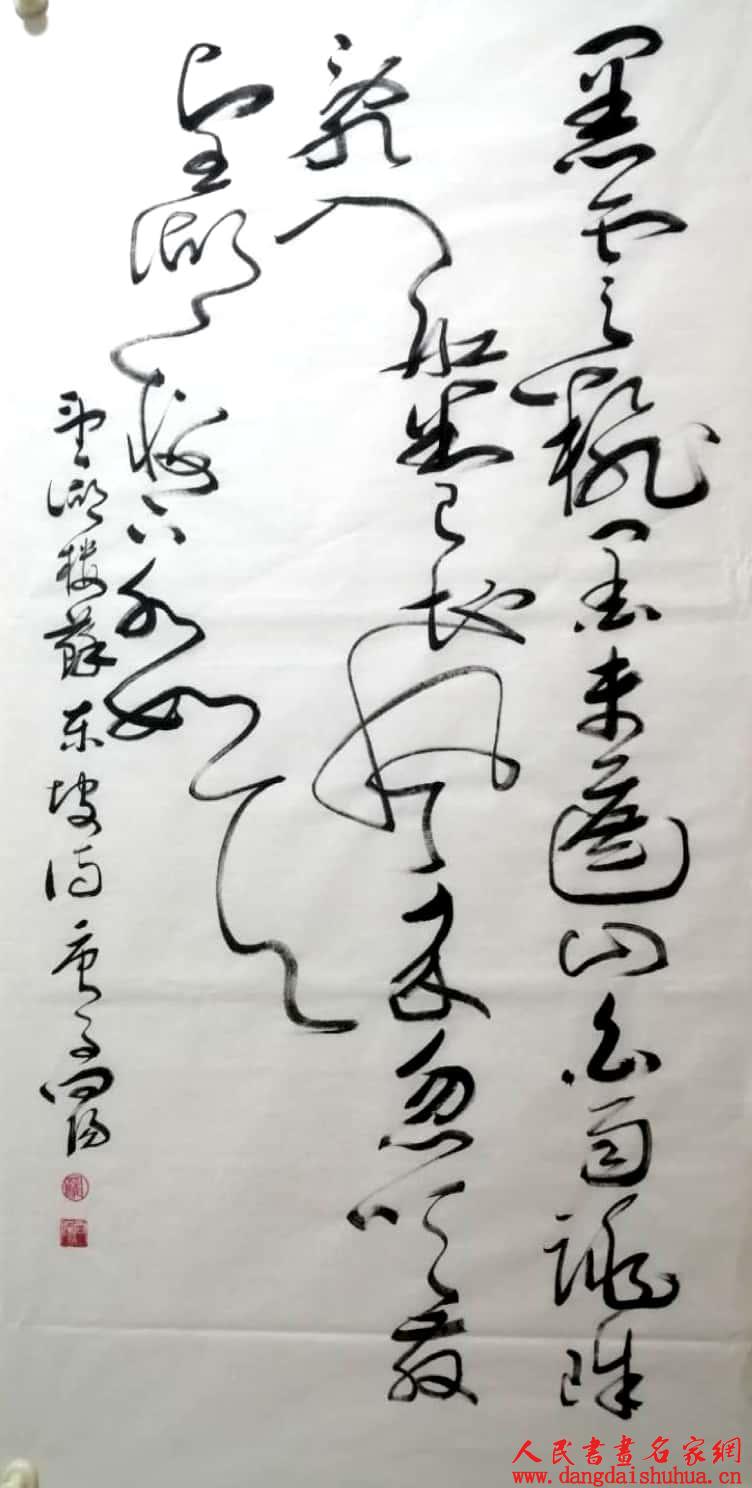 黑雲翻墨未遮山白雨跳珠
亂入船卷地風来忽吹散
望湖楼下水如天
望湖楼蘇东坡诗庚子向阳
人民書畫名家網
www.dangdaishuhua.cn